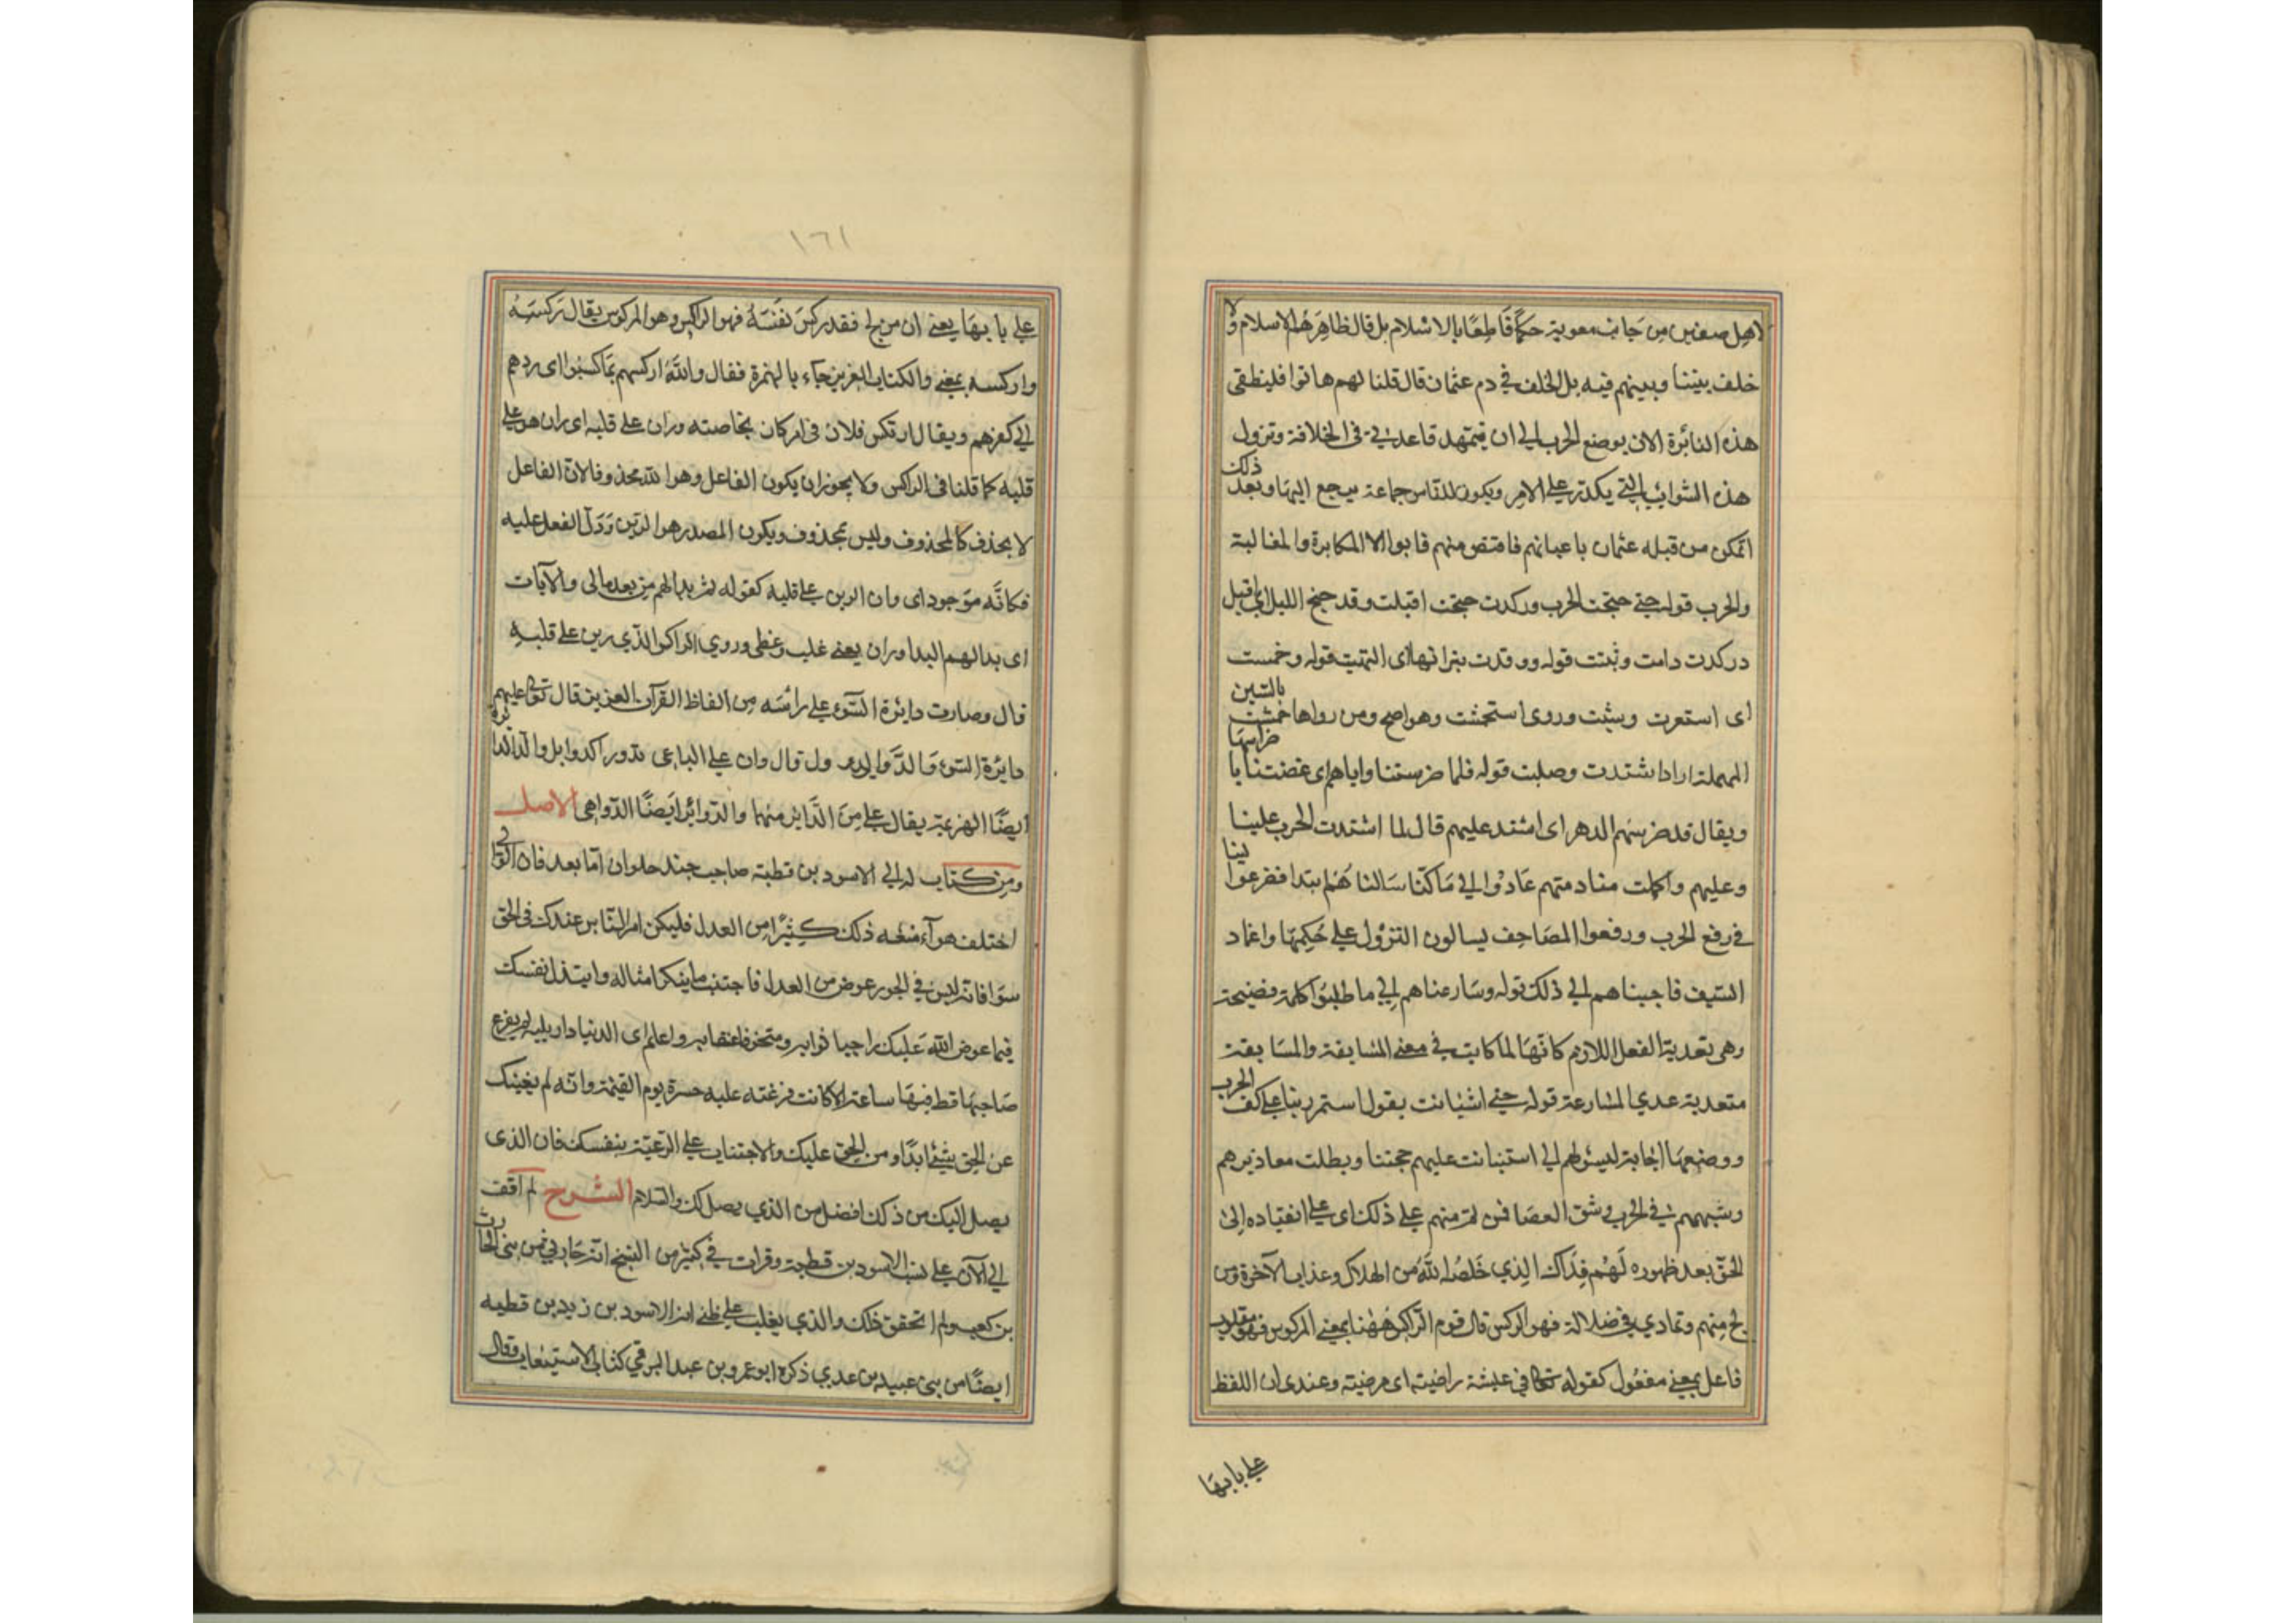 لاهل صفين من جانب معوية حكمًا قاطعًا بالاسلام بل قال ظاهرهم الاسلام ولا
خلف بيننا وبينهم فيه بل الخلف في دم عثمان قال قلنا لهم هاتوا فلينطفى
هذه النائرة الان بوضع الحرب الي ان يتمهد قاعدتي في الخلافة وتزول
هذه الشوائب التي يكدر علي الامر ويكون للناس جماعة يرجع اليها وبعد ذلك
اتمكن من قتلة عثمان باعيانهم فاقتص منهم فابوا الا المكابرة والمغالبة
والحرب قوله حتي جنحت الحرب وركدت جنحت اقبلت وقد جنح الليل اي اقبل
دركدت دامت وثبتت قوله ووقدت نيرانها اي التهبت قوله وحمست
اى استعرت وشبت وروى استحمشت وهو اصح ومن رواها حمست بالسين
المهملة اراد اشتدت وصلبت قوله فلما ضرستنا واياهم اى عضتنا باضراسها
ويقال قد ضرسهم الدهر اى اشتد عليهم قال لما اشتدت الحرب علينا
وعليهم واكلت منا ومنهم عادوا الي ما كنا سالناهم ابتدا ففزعوا الينا
في رفع الحرب ورفعوا المصاحف يسالون النزول علي حكمها واغماد
السيف فاجبناهم الي ذلك قوله وسارعناهم الي ما طلبوا كلمة فصيحة
وهى تعدية الفعل اللازم كانها لما كانت في معنى المسابقة والمسابقة
متعدية عدي المسارعة قوله حتي استبانت يقول استمررنا علي كف الحرب
ووضعها اجابة لسؤلهم الي استبانت عليهم حجتنا وبطلت معاذيرهم
وشبهتهم في الحرب وشق العصا فمن تم منهم علي ذلك اى علي انقياده الى
الحق بعد ظهوره لهم فذاك الذي خلصه الله من الهلاك وعذاب الآخرة ومن
لج منهم وتمادي في ضلاله فهو الراكس قال قوم الراكس ههنا بمعنى المركوس فهو مقلوب
فاعل بمعنى مفعول كقوله تعالى في عيشة راضية اى مرضية وعندى ان اللفظ
علي بابها
١٦١
علي بابها يعني ان من لج فقد ركس نفسه فهو الراكس وهو المركوس يقال ركسه
واركسه بمعنى والكتاب العزيز جاء بالهمزة فقال والله اركسهم بما كسبوا اى ردهم
الي كفرهم ويقال ارتكس فلان في امر كان نجا منه وران على قلبه اى ران هو علي
قلبه كما قلنا في الراكس ولا يجوز ان يكون الفاعل وهو الله محذوفا لان الفاعل
لا يحذف كالمحذوف وليس بمحذوف ويكون المصدر هو الرين ودل الفعل عليه
فكانه موجود اى وان الرين علي قلبه كقوله ثم بدا لهم من بعد ما راى والآيات
اى بدا لهم البدا وران يعني غلب وغطى وروي الراكس الذي رين على قلبه
قال وصارت دايرة السوء علي راسه من الفاظ القرآن العزيز قال تعالى عليهم
دايرة السوء والدوائر ول قال وان علي الباغى تدور الدوائر والدائرة
ايضًا الهزيمة يقال علي من الدائرة منهما والدوائر ايضًا الدواهى الاصل
ومن كتاب له الي الاسود بن قطبة صاحب جند حلوان اما بعد فان الوالى
اختلف هواه منعه ذلك كثيرًا من العدل فليكن امر الناس عندك في الحق
سوا فانه ليس في الجور عوض من العدل فاجتنب ما ينكر امثاله وابتذل نفسك
فيما عوض الله عليك راجيا ثوابه ومتخوفا عقابه واعلم ان الدنيا دار بلية لم يفرغ
صاحبها قط فيها ساعة الا كانت فرغته عليه حسرة يوم القيمة وانه لم يغنيك
عن الحق شئ ابدًا ومن الحق عليك والاجتناب علي الرعية بنفسك فان الذى
يصل اليك من ذلك افضل من الذي يصل لك والسلام الشرح لم اقف
الي الآن علي نسب الاسود بن قطبة وقرات في كثير من النسخ انه حارثي من بنى الحارث
بن كعب ولم اتحقق ذلك والذي يغلب علي ظني انه الاسود بن زيد بن قطبه
ايضًا من بنى عبيد بن عدي ذكره ابو عمرو بن عبد البر في كتاب الاستيعاب وقال